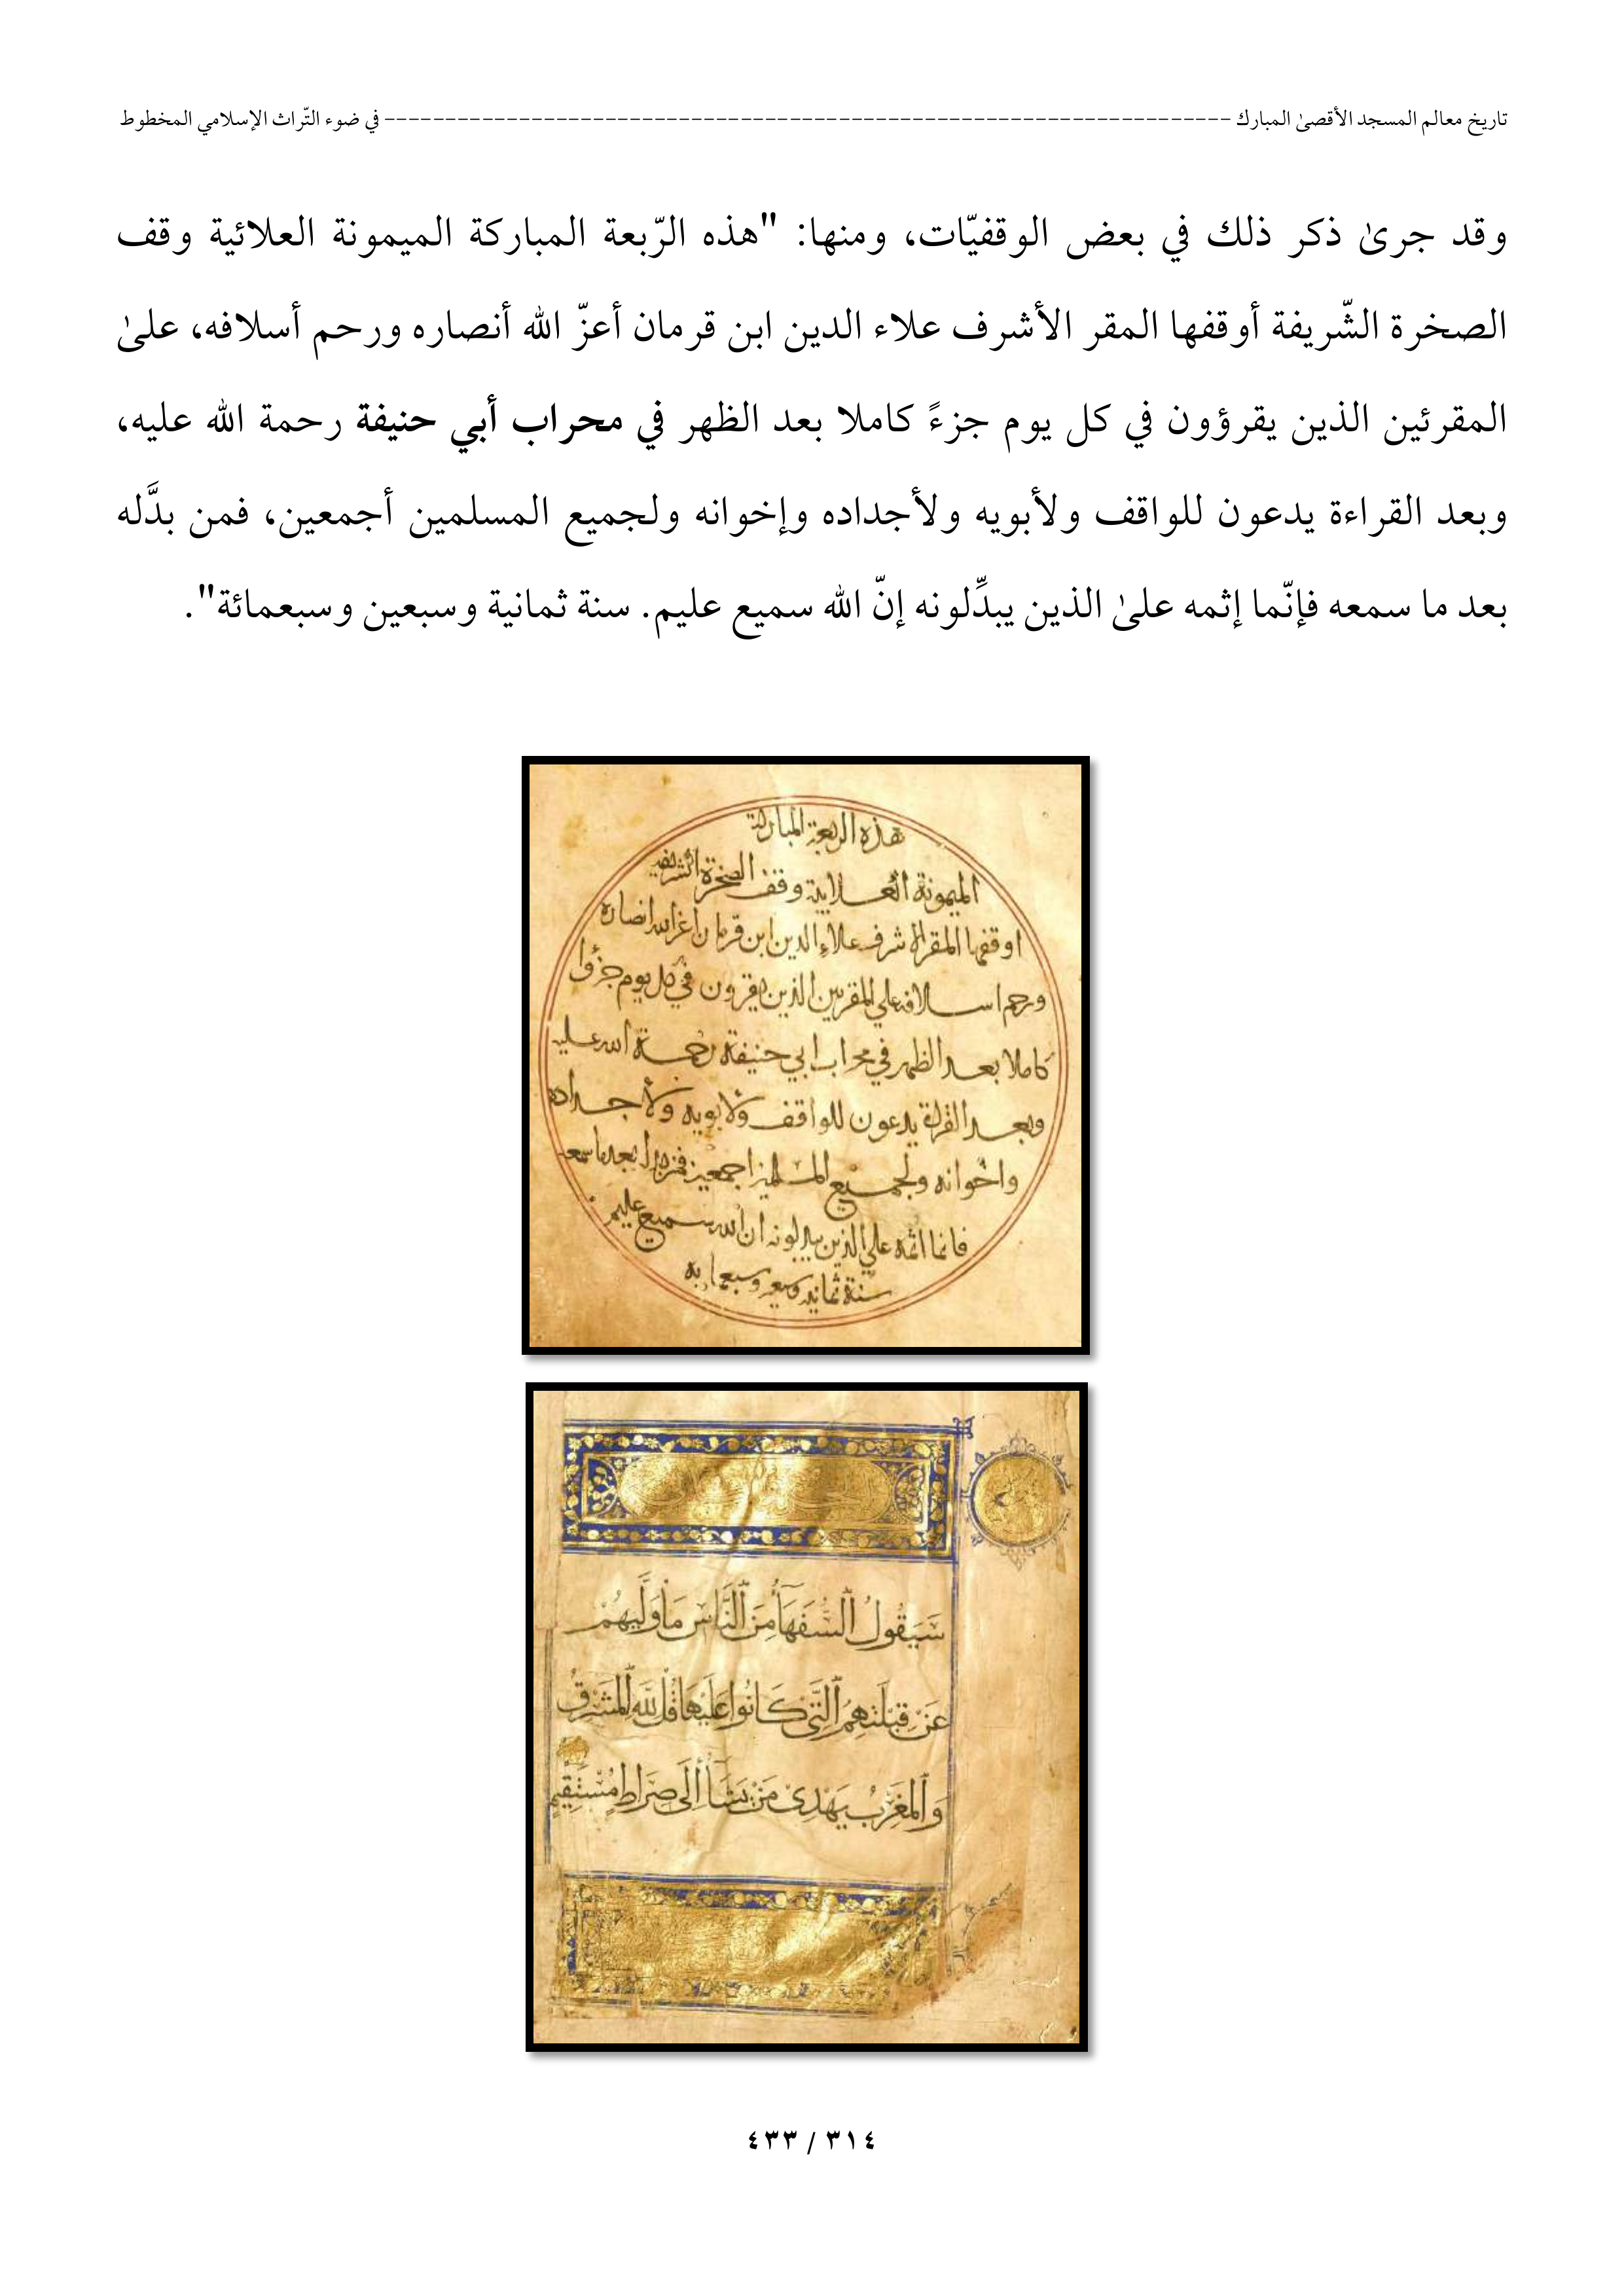 تاريخ معالم المسجد الأقصىٰ المبارك -------------------------------------------------------------------- في ضوء التّراث الإسلامي المخطوط
وقد جرىٰ ذكر ذلك في بعض الوقفيّات، ومنها: "هذه الرّبعة المباركة الميمونة العلائية وقف
الصخرة الشّريفة أوقفها المقر الأشرف علاء الدين ابن قرمان أعزّ الله أنصاره ورحم أسلافه، علىٰ
المقرئين الذين يقرؤون في كل يوم جزءً كاملا بعد الظهر في محراب أبي حنيفة رحمة الله عليه،
وبعد القراءة يدعون للواقف ولأبويه ولأجداده وإخوانه ولجميع المسلمين أجمعين، فمن بدَّله
بعد ما سمعه فإنّما إثمه علىٰ الذين يبدِّلونه إنّ الله سميع عليم. سنة ثمانية وسبعين وسبعمائة".
هذه الربعة المباركة
الميمونة العلاية وقف الصخرة الشريفه
اوقفها المقر الاشرف علاء الدين ابن قرمان اعز الله انصاره
ورحم اسلافه علي المقريين الذين يقرون في كل يوم جزؤا
كاملا بعد الظهر في محراب ابي حنيفة رحمة الله عليه
وبعد القراة يدعون للواقف ولابويه ولاجداده
واخوانه ولجميع المسلمين اجمعين فمن بدله بعد ما سمعه
فانما اثمه علي الذين يبدلونه ان الله سميع عليم
سنة ثمانيه وسبعين وسبعمايه
سَيَقُولُ ٱلسُّفَهَآءُ مِنَ ٱلنَّاسِ مَا وَلَّيهُمْ
عَنْ قِبْلَتِهِمُ ٱلَّتِي كَانُوا عَلَيْهَا قُل لِلَّهِ ٱلْمَشْرِقُ
وَٱلْمَغْرِبُ يَهْدِى مَنْ يَشَآءُ إِلَى صِرَاطٍ مُسْتَقِيمٍ
٣١٤ / ٤٣٣